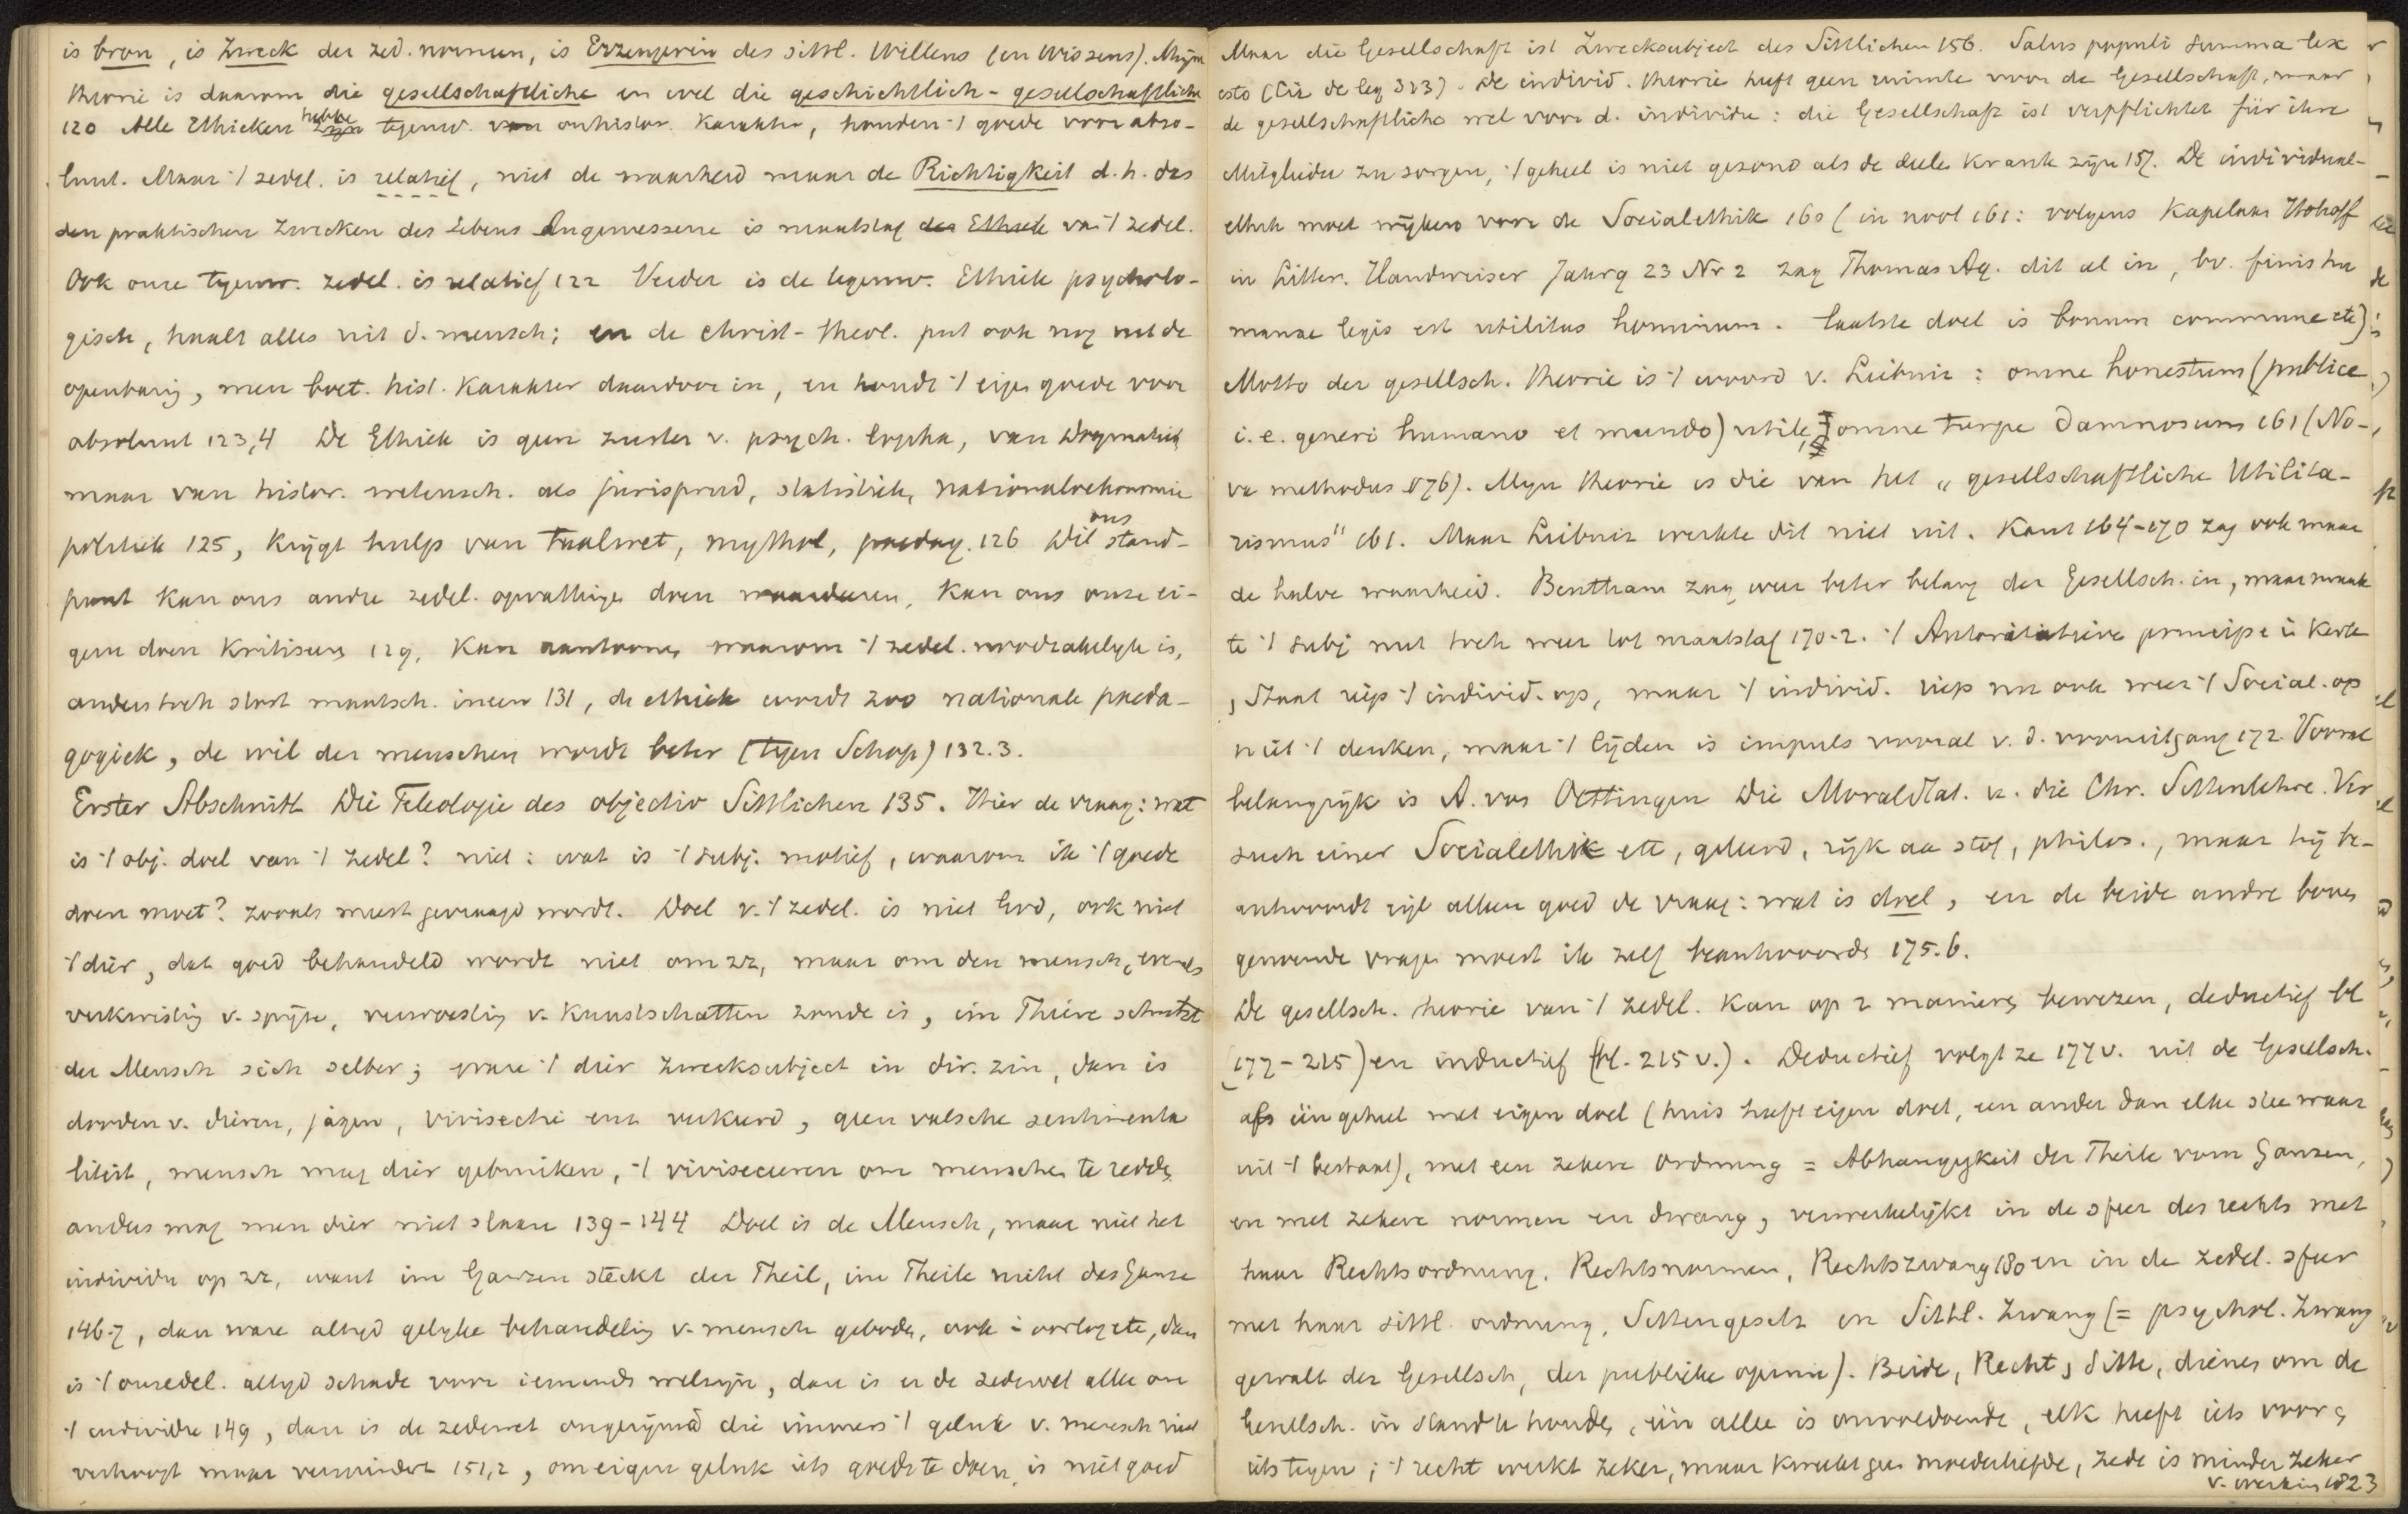 is bron, is Zweck der zed. normen, is Erzeugerin des sittl. Willens (en Wissens). Mijn
theorie is daarom die gesellschaftliche en wel die geschichtlich-gesellschaftliche
120 Alle Ethieken hebbe tegenw. onhistor. karakter, houden 't goede voor abso-
luut. Maar 't zedel. is relatief, niet de waarheid maar de Richtigkeit d.h. das
den praktischen Zwecken des Lebens Angemessene is maatstaf van 't zedel.
Ook onze tegenw. zedel. is relatief 122 Verder is de tegenw. Ethiek psycholo-
gisch, haalt alles uit d. mensch; en de christ-theol. put ook nog uit de
openbarig, men boet. hist. karakter daardoor in, en houdt 't eige goede voor
absoluut 123,4 De Ethiek is geen zuster v. psych. logika, van Dogmatiek
maar van histor. wetensch. als jurisprud, statistiek, nationaloekonomie
politiek 125, krijgt hulp van taalwet, mythol, paedag. 126 Dit ons stand-
punt kan ons andre zedel. opvattinge doen waardeeren, kan ons onze ei-
gene doen kritiseeren 129, kan aantoonen waarom 't zedel. noodzakelijk is,
anders toch stort maatsch. ineen 131, de ethiek wordt zoo nationale paeda-
gogiek, de wil der menschen wordt beter (tegen Schop) 132.3.
Erster Abschnitt Die Teleologie des objectiv Sittlichen 135. Hier de vraag: wat
is 't obj. doel van 't zedel? niet: wat is 't subj. motief, waarom ik 't goede
doen moet? zooals meest gevraagd wordt. Doel v. 't zedel. is niet God, ook niet
't dier, dat goed behandeld wordt niet om zz, maar om den mensch, evenals
verkwistig v. spijze, verwoestig v. kunstschatten zonde is, im Thiere schützt
der Mensch sich selber; ware 't dier Zwecksubject in dir. zin, dan is
dooden v. dieren, jagen, vivisectie enz verkeerd, geen valsche sentimenta
liteit, mensch mag dier gebruiken, 't vivisecieren om mensche te redde
anders mag men dier niet slaan 139-144 Doel is de Mensch, maar niet het
individu op zz, want im Ganzen steckt der Theil, im Theile nicht das Ganze
146.7, dan ware altijd gelijke behandelig v. mensch gebode, ook i oorlog etc, dan
is 't onzedel. altijd schade voor iemands welzijn, dan is er de zedewet alleen om
't individu 149, dan is de zedewet ongerijmd die immers 't geluk v. mensch niet
verhoogt maar vermindert 151,2, om eigen geluk iets goeds te doen is niet goed
Maar die Gesellschaft ist Zwecksubject des Sittlichen 156. Salus populi summa lex
esto (Cic de leg 3:3). De individ. theorie heeft geen ruimte voor de Gesellschaft, maar
de gesellschaftliche wel voor d. individu: die Gesellschaft ist verpflichtet für ihre
Mitglieder zu sorgen, 't geheel is niet gezond als de deele krank zijn 157. De individual-
ethik moet wijken voor de Socialethik 160 (in noot 161: volgens Kapelaan Hohoff
in Litter. Handweiser Jahrg 23 Nr 2 zag Thomas Aq. dit al in, bv. finis hu
manae legis est utilitas hominum. laatste doel is bonum commune etc)
Motto der gesellsch. theorie is 't woord v. Leibniz: omne honestum (publice
i.e. generi humano et mundo) utile, omne turpe damnosum 161 (No-
va methodus §76). Mijn theorie is die van het "gesellschaftliche Utilita-
rismus" 161. Maar Leibniz werkte dit niet uit. Kant 164-170 zag ook maar
de halve waarheid. Bentham zag weer beter belang der Gesellsch. in, maar maak
te 't subj nut toch weer tot maatstaf 170-2. 't Autoritatieve principe i Kerk
, Staat riep 't individ. op, maar 't individ. riep nu ook weer 't Social. op
niet 't denken, maar 't lijden is impuls vooral v. d. vooruitgang 172 Vooral
belangrijk is A. von Oettingen Die Moralstat. u. die Chr. Sittenlehre. Ver
such einer Socialethik etc, geleerd, rijk aa stof, philos., maar hij be-
antwoordt eigl alleen goed de vraag: wat is doel, en de beide andre boven
genoemde vrage moest ik zelf beantwoorde 175.6.
De gesellsch. theorie van 't zedel. kan op 2 maniere bewezen, deductief bl
(177-215) en inductief (bl. 215 v.). Deductief volgt ze 177 v. uit de Gesellsch.
als één geheel met eigen doel (huis heeft eigen doel, een ander dan elke stee waar
uit 't bestaat), met een zekere Ordnung = Abhangigkeit der Theile vom Ganzen,
en met zekere normen en dwang, verwerkelijkt in de sfeer des rechts met
haar Rechtsordnung. Rechtsnormen, Rechtszwang 180 en in de zedel. sfeer
met haar sittl. ordnung, Sittengesetz en Sittl. Zwang (= psychol. Zwang
gewalt der Gesellsch, der publieke opinie). Beide, Recht, Sitte, dienen om de
Gesellsch. in stand te houde, één alleen is onvoldoende, elk heeft iets voor,
iets tegen; 't recht werkt zeker, maar kweekt geen moederliefde, zede is minder zeker
v. werking 182.3